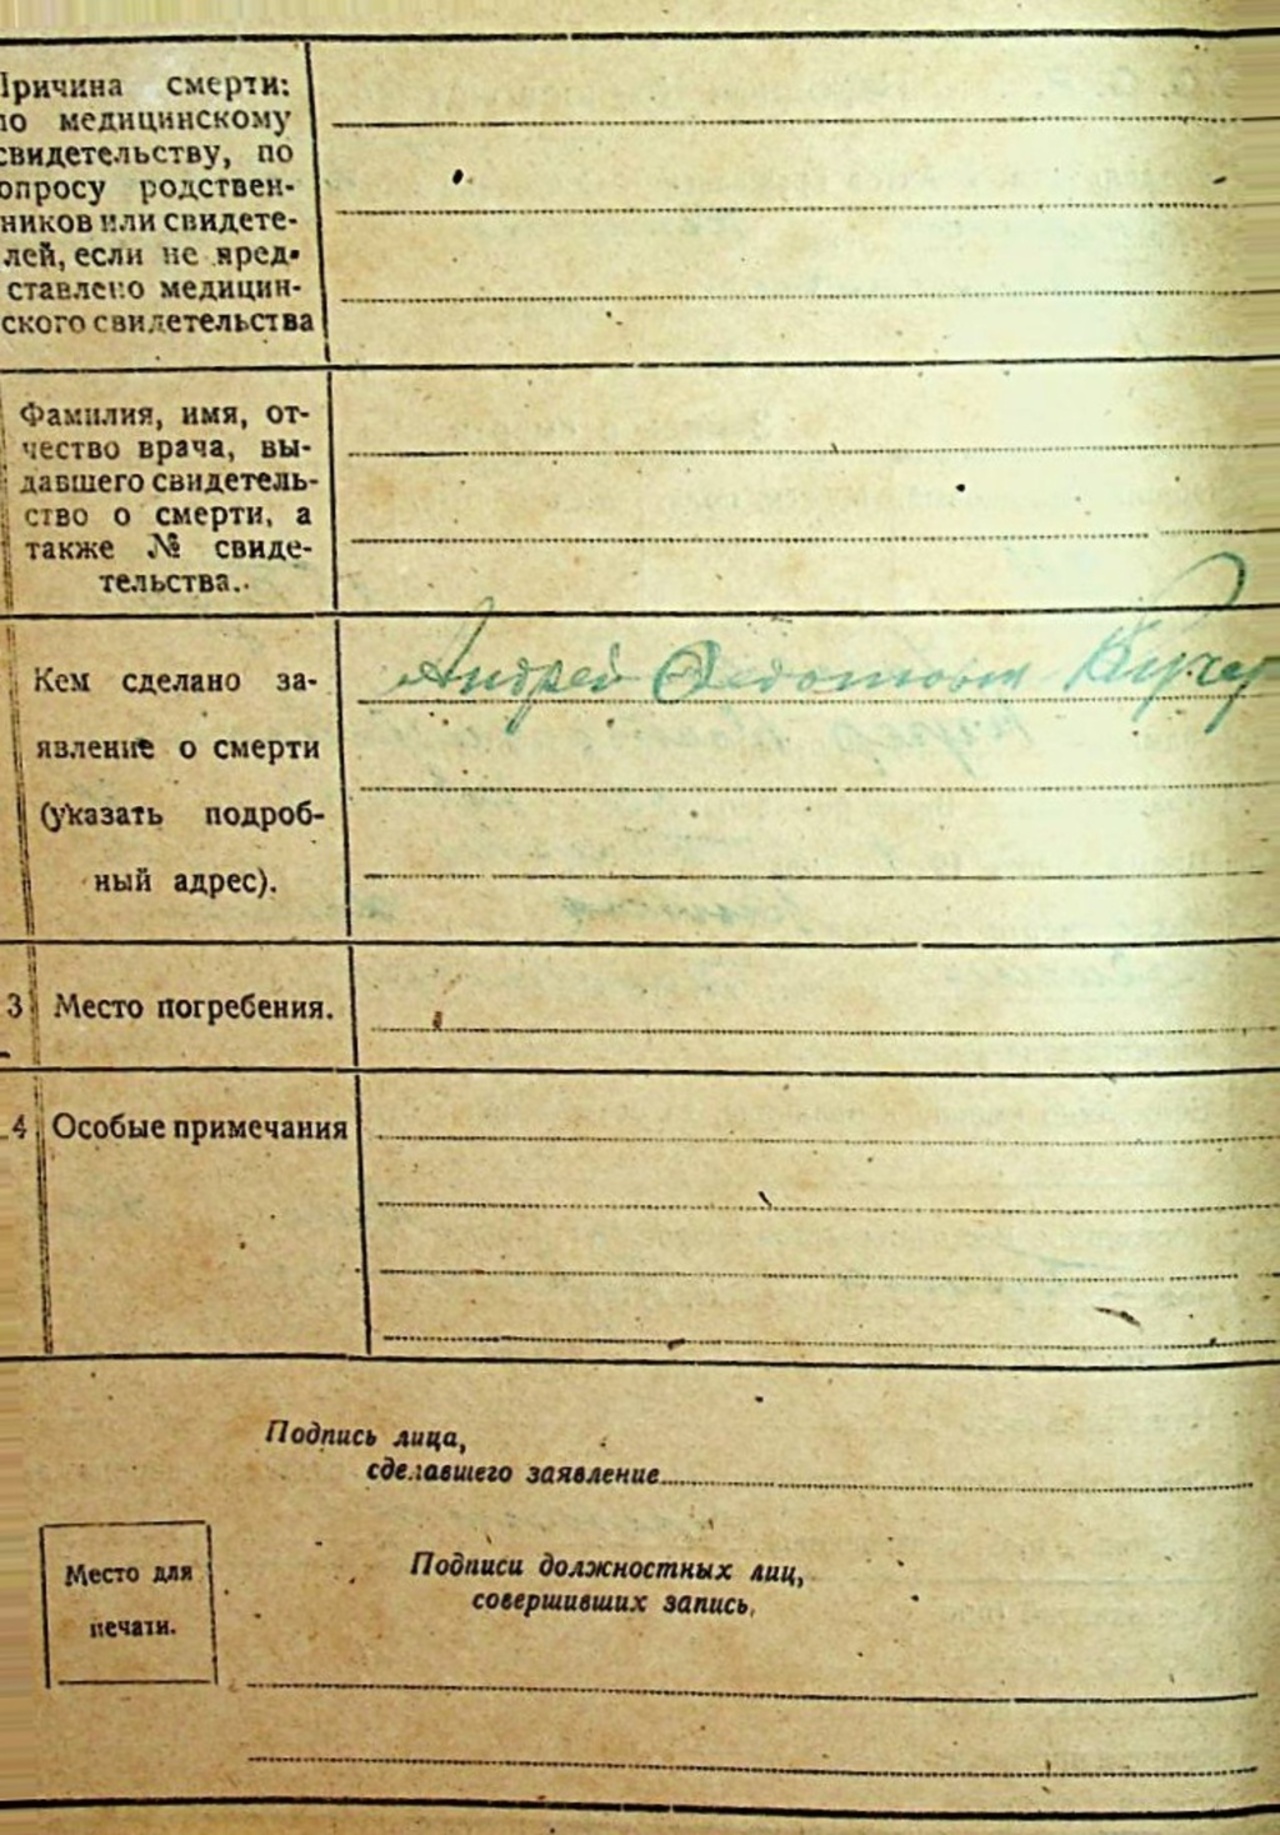 Причина смерти:
по медицинскому
свидетельству, по
опросу родствен-
ников или свидете-
лей, если не пред-
ставлено медицин-
ского свидетельства
Фамилия, имя, от-
чество врача, вы-
давшего свидетель-
ство о смерти, а
также № свиде-
тельства.
Кем сделано за-
явление о смерти
(указать подроб-
ный адрес).
Андрей Федотович Кучер
3 Место погребения.
4 Особые примечания
Подпись лица,
сделавшего заявление
Место для
печати.
Подписи должностных лиц,
совершивших запись,